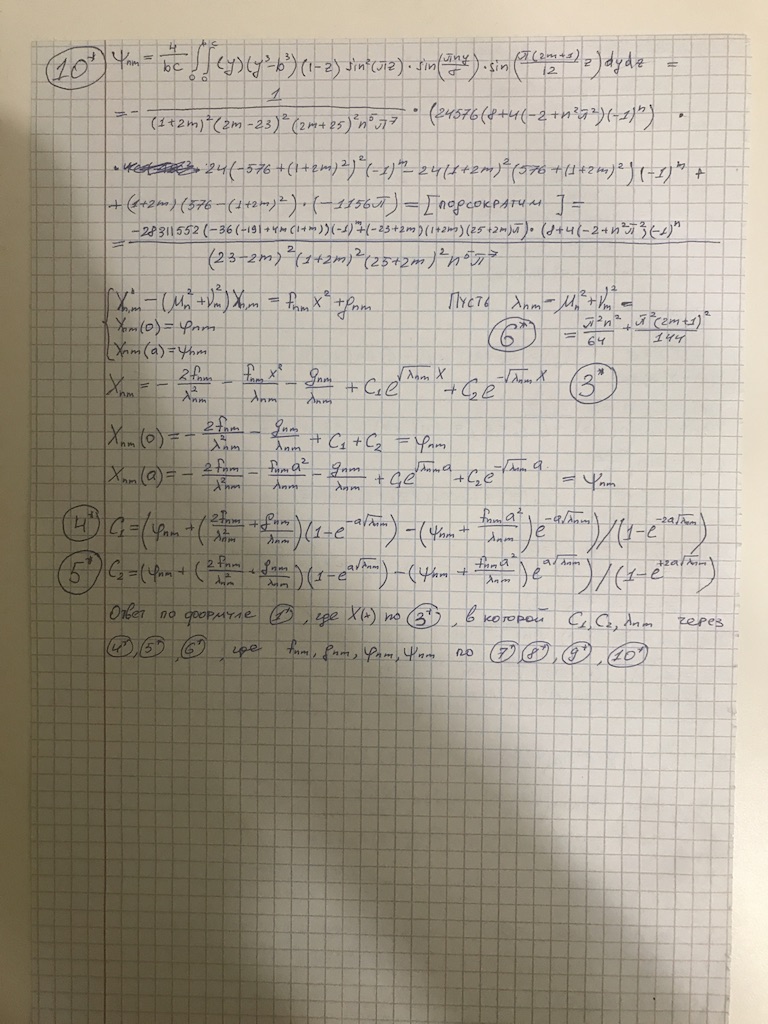 10* ψnm = 4/bc ∫₀ᵇ∫₀ᶜ (y)(y³-b³)(1-z) sin²(πz)·sin(πny/8)·sin(π(2m+1)/12 z) dydz =
= - 1/((1+2m)²(2m-23)²(2m+25)²n⁵π⁷) · (24576(8+4(-2+n²π²)(-1)ⁿ) ·
· 24(-576+(1+2m)²)²(-1)ᵐ - 24(1+2m)²(576+(1+2m)²)(-1)ᵐ +
+ (1+2m)(576-(1+2m)²)·(-1156π) = [подсократим] =
= -28311552(-36(-191+4m(1+m))(-1)ᵐ+(-23+2m)(1+2m)(25+2m)π)·(8+4(-2+n²π²)(-1)ⁿ / (23-2m)²(1+2m)²(25+2m)²n⁵π⁷
{ X''n,m - (μn²+νm²)Xn,m = fnm x²+gnm Пусть λnm = μn²+νm² =
Xnm(0) = φnm 6* = π²n²/64 + π²(2m+1)²/144
Xnm(a) = ψnm
Xnm = - 2fnm/λ²nm - fnm x²/λnm - gnm/λnm + C₁e^(√λnm x) + C₂e^(-√λnm x) 3*
Xnm(0) = - 2fnm/λ²nm - gnm/λnm + C₁ + C₂ = φnm
Xnm(a) = - 2fnm/λ²nm - fnm a²/λnm - gnm/λnm + C₁e^(√λnm a) + C₂e^(-√λnm a) = ψnm
4* C₁ = (φnm + (2fnm/λ²nm + gnm/λnm)(1-e^(-a√λnm)) - (ψnm + fnm a²/λnm)e^(-a√λnm))/(1-e^(-2a√λnm))
5* C₂ = (φnm + (2fnm/λ²nm + gnm/λnm)(1-e^(a√λnm)) - (ψnm + fnm a²/λnm)e^(a√λnm))/(1-e^(+2a√λnm))
Ответ по формуле 1*, где X(x) по 3*, в которой C₁, C₂, λnm через
4*, 5*, 6*, где fnm, gnm, φnm, ψnm по 7*, 8*, 9*, 10*